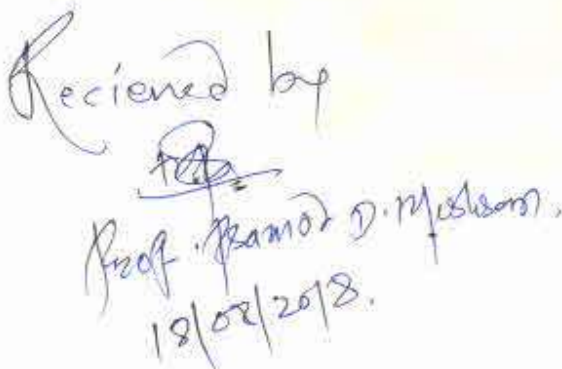 Recieved by
Prof. Pramod D. Meshram.
18/08/2018.